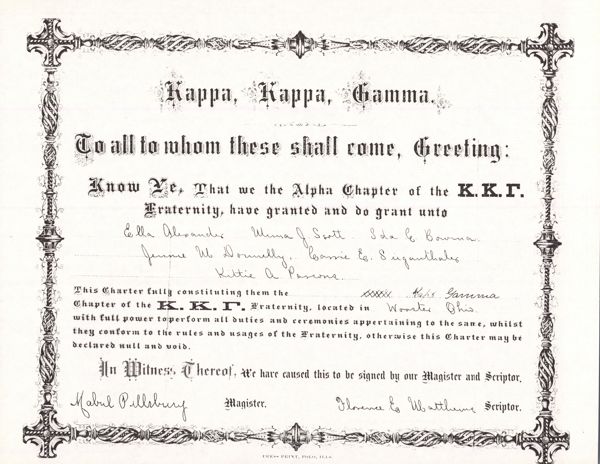 Kappa, Kappa, Gamma.
To all to whom these shall come, Greeting:
Know Ye, That we the Alpha Chapter of the K. K. Γ.
Fraternity, have granted and do grant unto
Ella Alexander Minna J Scott. Ida E Bowman.
Jennie M Donnelly, Carrie E.
Kittie A Parsons.
This Charter fully constituting them the xxxxx Kapp Gamma
Chapter of the K. K. Γ. Fraternity, located in Wooster Ohio.
with full power to perform all duties and ceremonies appertaining to the same, whilst
they conform to the rules and usages of the Fraternity, otherwise this Charter may be
declared null and void.
In Witness Thereof, We have caused this to be signed by our Magister and Scriptor.
Mabul Pillsbury Magister. Florence E Matthews Scriptor.
PRESS PRINT, POLO, ILLS.